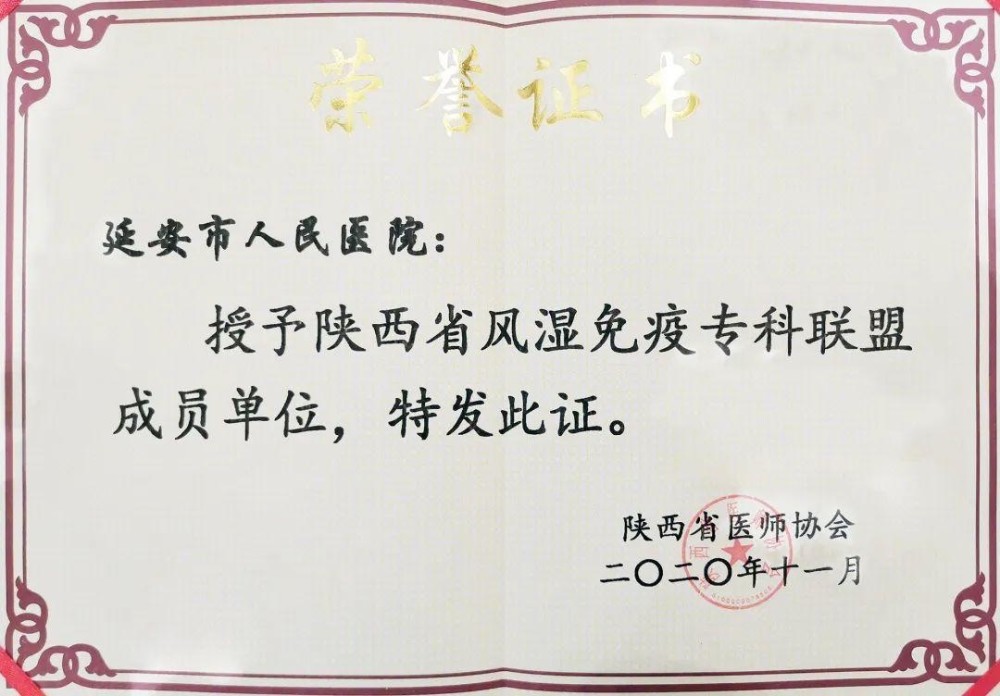 荣誉证书
延安市人民医院：
授予陕西省风湿免疫专科联盟
成员单位，特发此证。
陕西省医师协会
二〇二〇年十一月